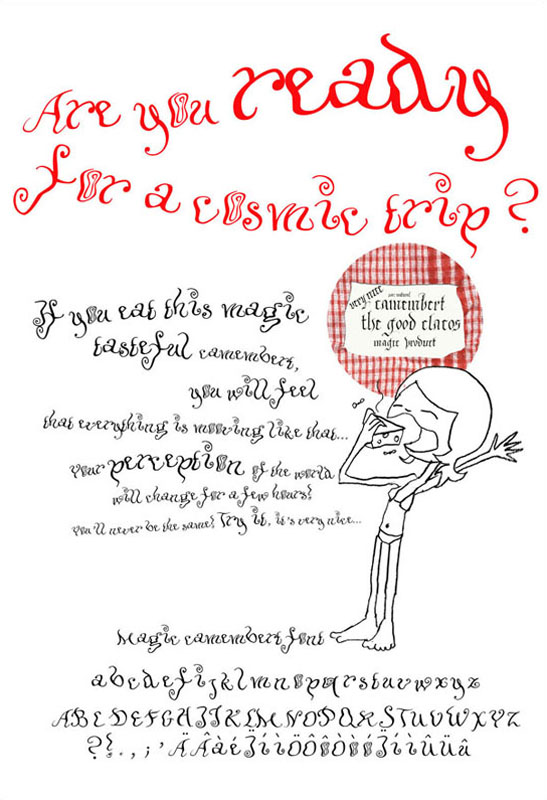 Are you ready
for a cosmic trip?
very nice
camembert
the good clacos
magic product
If you eat this magic
tasteful camembert,
you will feel
that everything is moving like that...
your perception of the world
will change for a few hours!
You'll never be the same! Try it, it's very nice...
Magic camembert font
abcdefijklmnopqrstuvwxyz
ABCDEFGHIJKLMNOPQRSTUVWXYZ